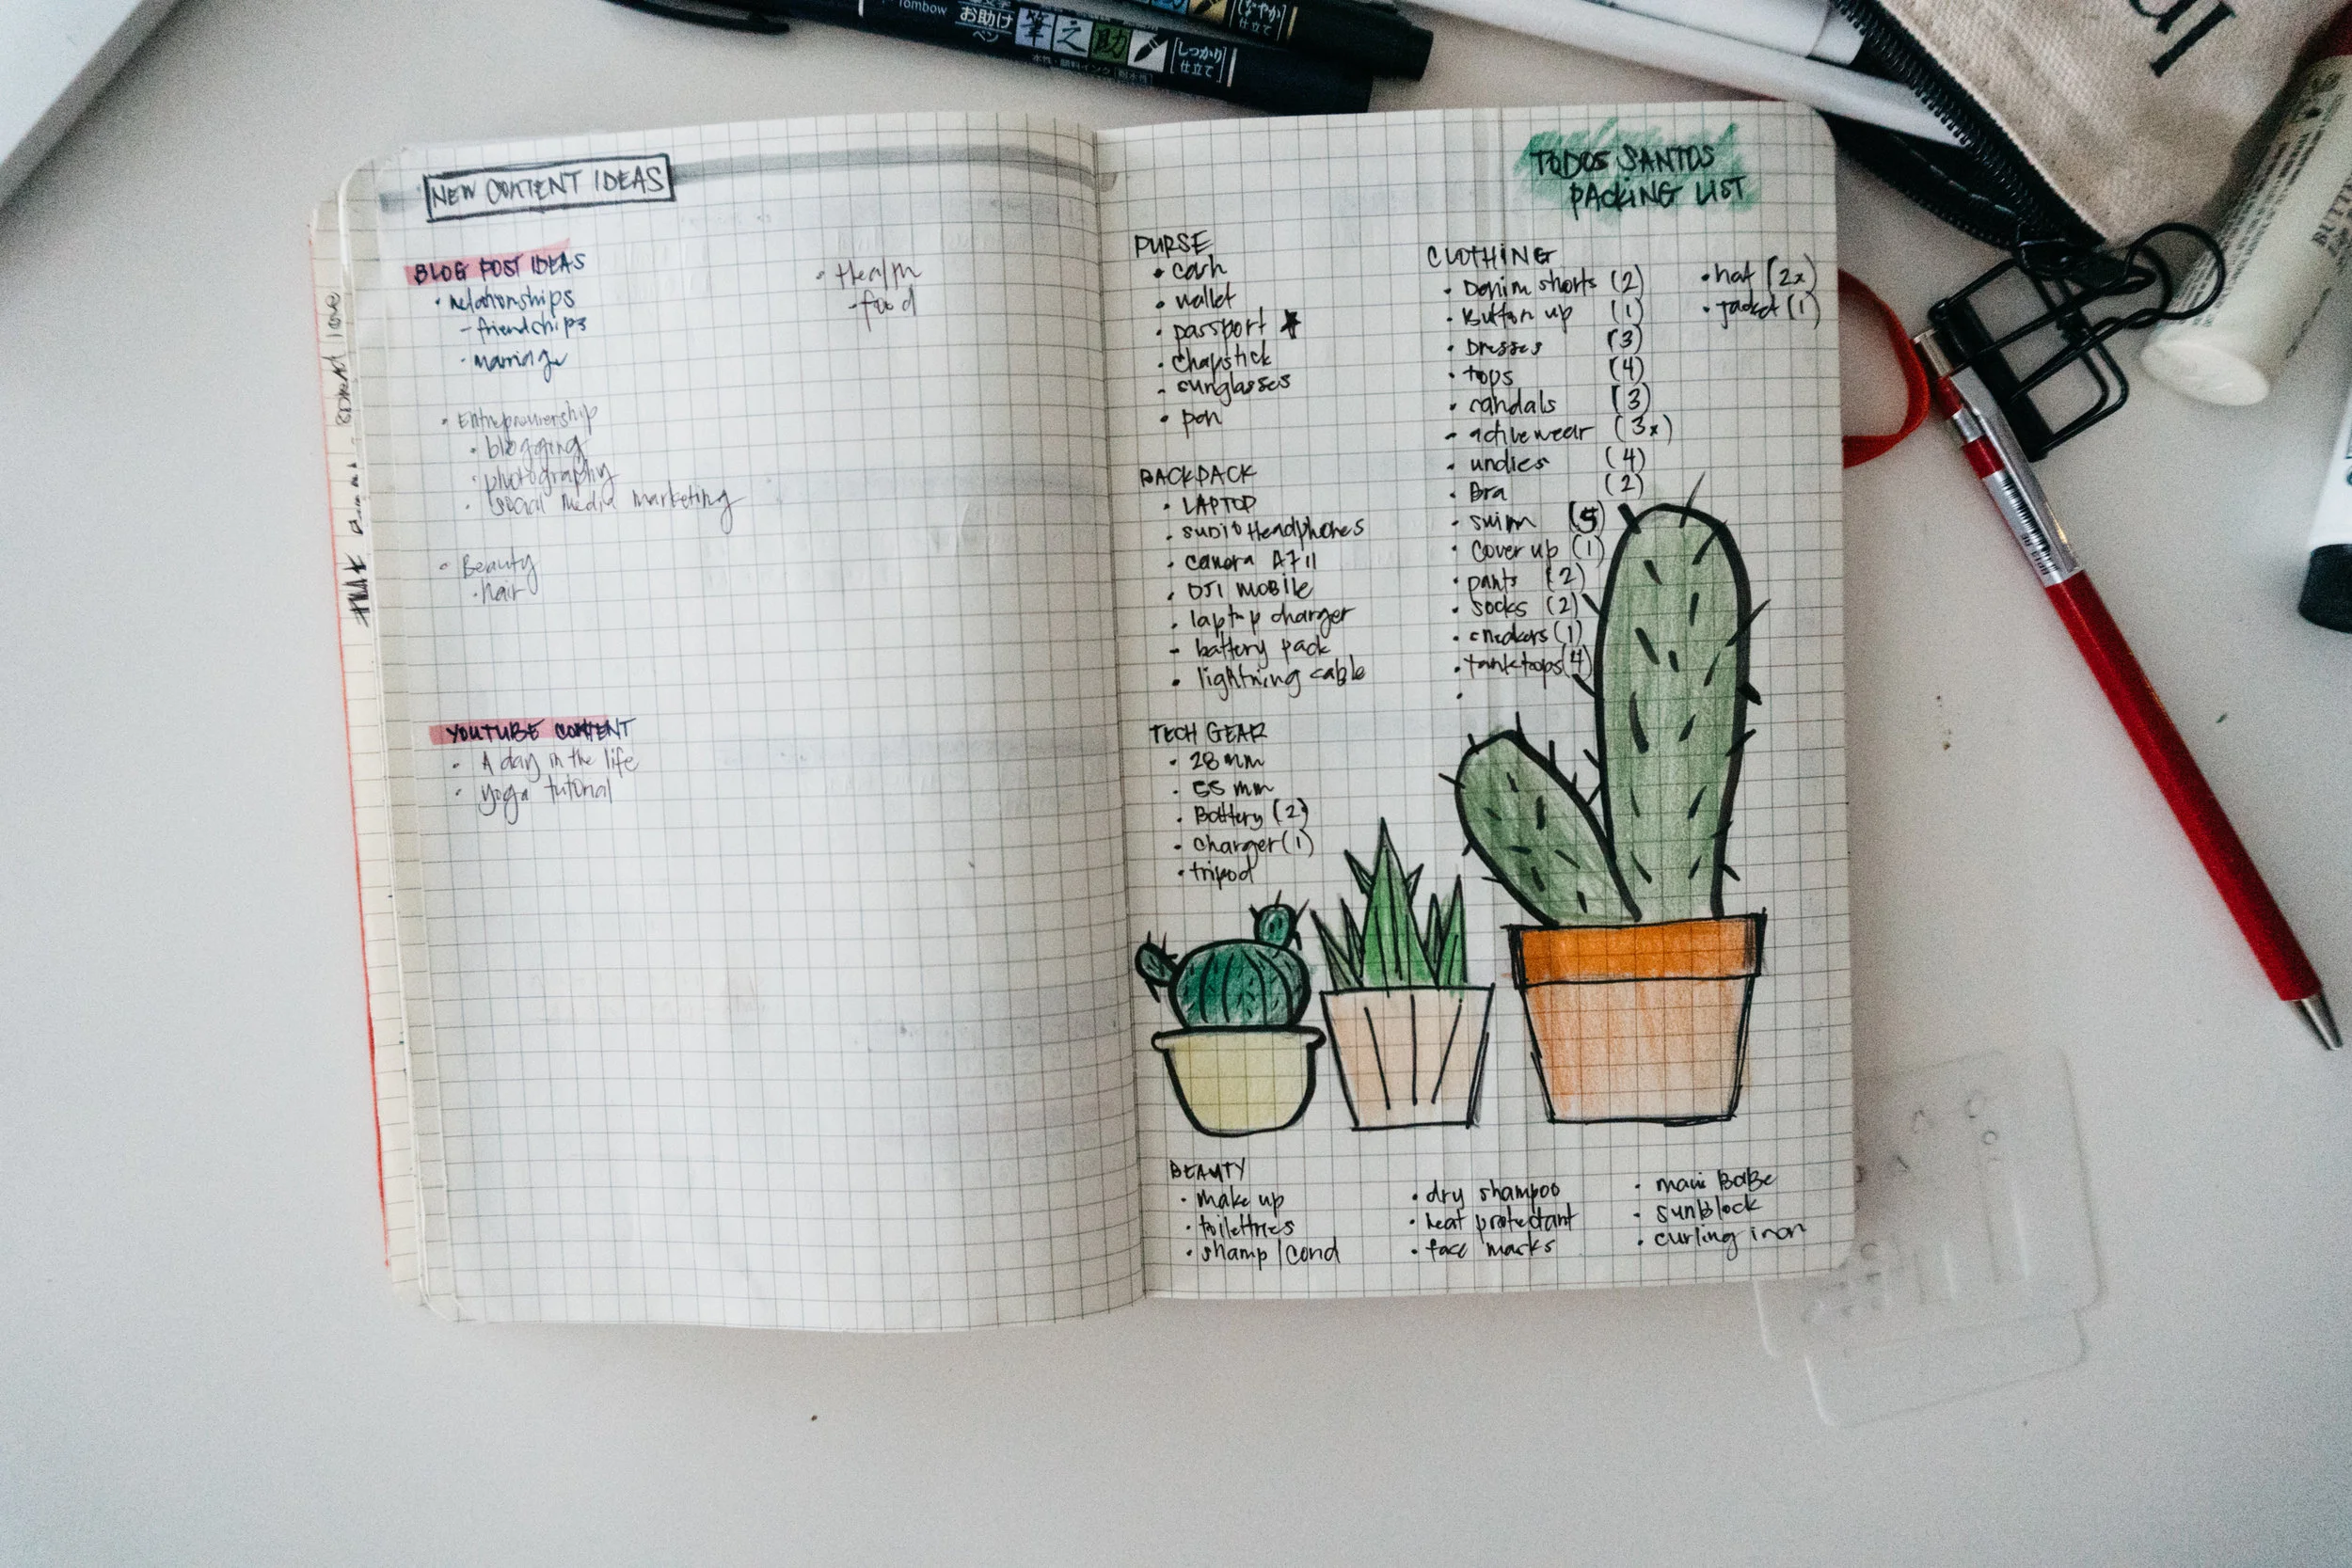 Tombow
お助け
ペン
筆之助
[しっかり
仕立て]
水性・顔料インク
仕立て
NEW CONTENT IDEAS
BLOG POST IDEAS
• relationships
- friendships
• marriage
• Entrepreneurship
• blogging
• photography
• social media marketing
• Beauty
• hair
• Health
- food
YOUTUBE CONTENT
• A day in the life
• yoga tutorial
TODOS SANTOS
PACKING LIST
PURSE
• cash
• wallet
• passport ★
• chapstick
- sunglasses
• pen
BACKPACK
• LAPTOP
• SUDIO Headphones
• camera A7II
• DJI MOBILE
• laptop charger
- battery pack
• lightning cable
TECH GEAR
• 28 mm
• 55 mm
• Battery (2)
• charger (1)
• tripod
CLOTHING
• Denim shorts (2)
• Button up (1)
• Dresses (3)
• tops (4)
• sandals (3)
- activewear (3x)
• undies (4)
• Bra (2)
• swim (5)
• cover up (1)
• pants (2)
• socks (2)
• sneakers (1)
• tank tops (4)
•
• hat (2x)
• jacket (1)
BEAUTY
• make up
• toilettries
• shamp/cond
• dry shampoo
• heat protectant
• face masks
• maui BaBe
• sunblock
• curling iron